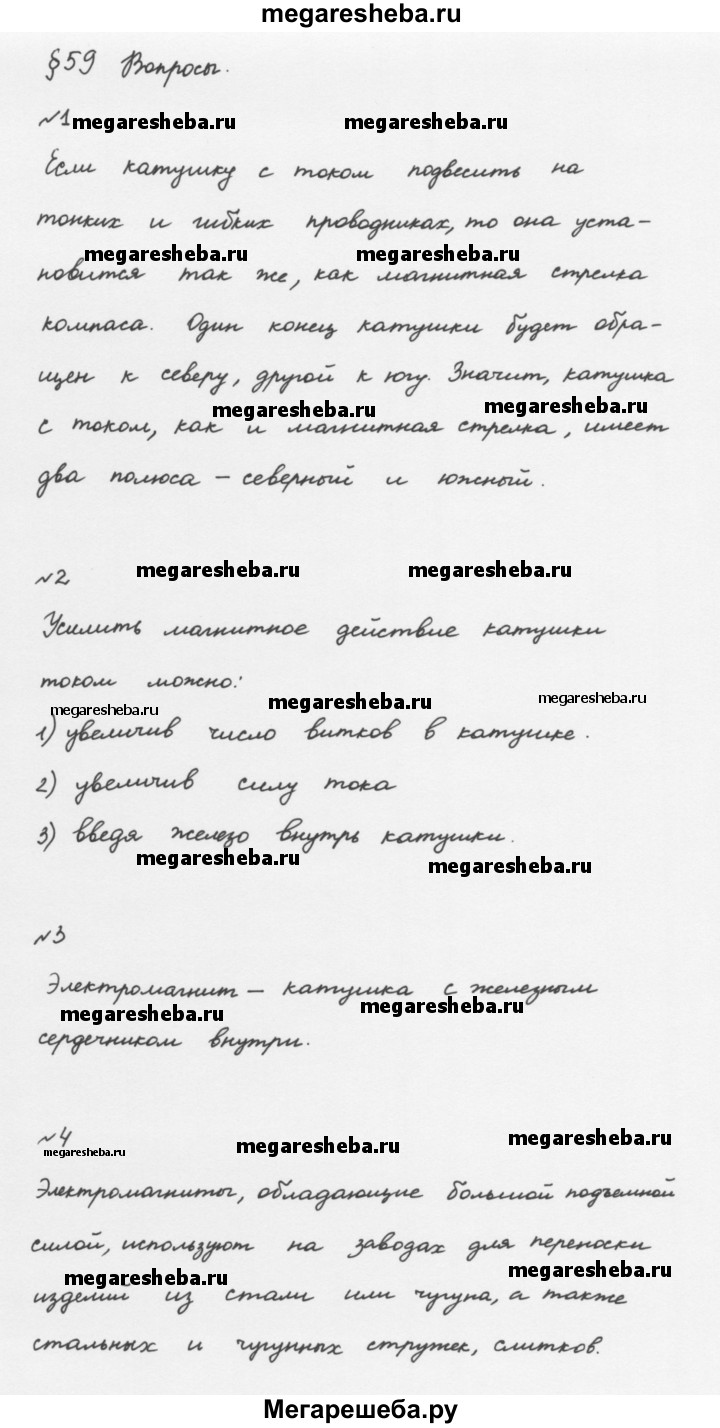 megaresheba.ru
§59 Вопросы.
№1
megaresheba.ru megaresheba.ru
Если катушку с током подвесить на
тонких и гибких проводниках, то она уста-
megaresheba.ru megaresheba.ru
новится так же, как магнитная стрелка
компаса. Один конец катушки будет обра-
щен к северу, другой к югу. Значит, катушка
megaresheba.ru megaresheba.ru
с током, как и магнитная стрелка, имеет
два полюса - северный и южный.
№2
megaresheba.ru megaresheba.ru
Усилить магнитное действие катушки
током можно:
megaresheba.ru megaresheba.ru megaresheba.ru
1) увеличив число витков в катушке.
2) увеличив силу тока
3) введя железо внутрь катушки.
megaresheba.ru megaresheba.ru
№3
Электромагнит - катушка с железным
megaresheba.ru megaresheba.ru
сердечником внутри.
№4
megaresheba.ru megaresheba.ru megaresheba.ru
Электромагниты, обладающие большой подъемной
силой, используют на заводах для переноски
megaresheba.ru megaresheba.ru
изделий из стали или чугуна, а также
стальных и чугунных стружек, слитков.
Мегарешеба.ру